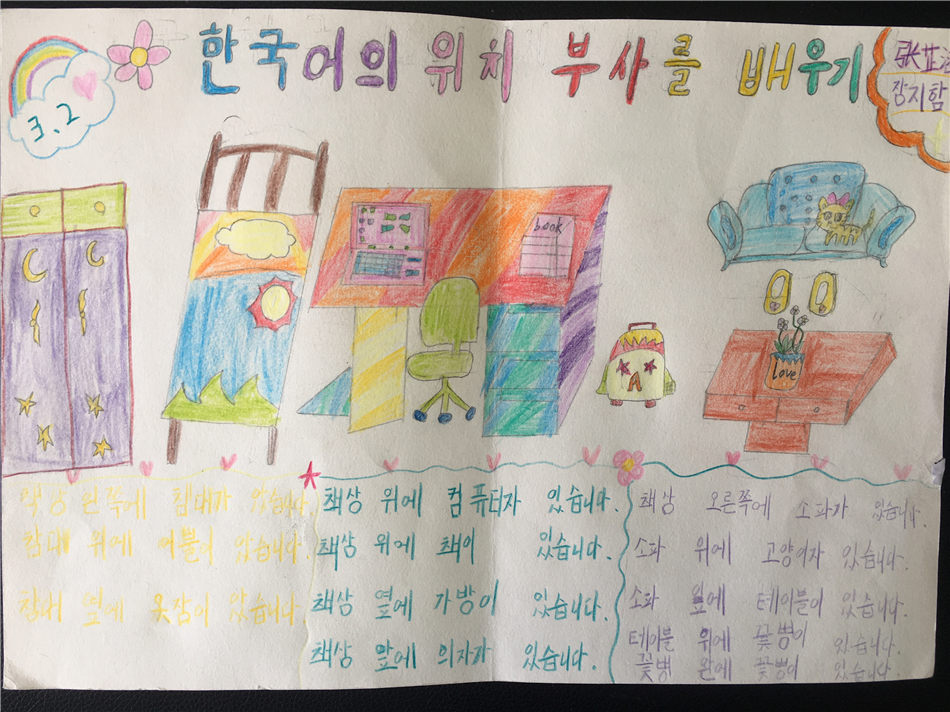 3.2
한국어의 위치 부사를 배우기
장지함
book
love
책상 왼쪽에 침대가 있습니다.
침대 위에 이불이 있습니다.
침대 옆에 옷장이 있습니다.
책상 위에 컴퓨터자 있습니다.
책상 위에 책이 있습니다.
책상 옆에 가방이 있습니다.
책상 앞에 의자가 있습니다.
책상 오른쪽에 소파가 있습니다.
소파 위에 고양이자 있습니다.
소파 앞에 테이블이 있습니다.
테이블 위에 꽃병이 있습니다.
꽃병 안에 꽃병이 있습니다.